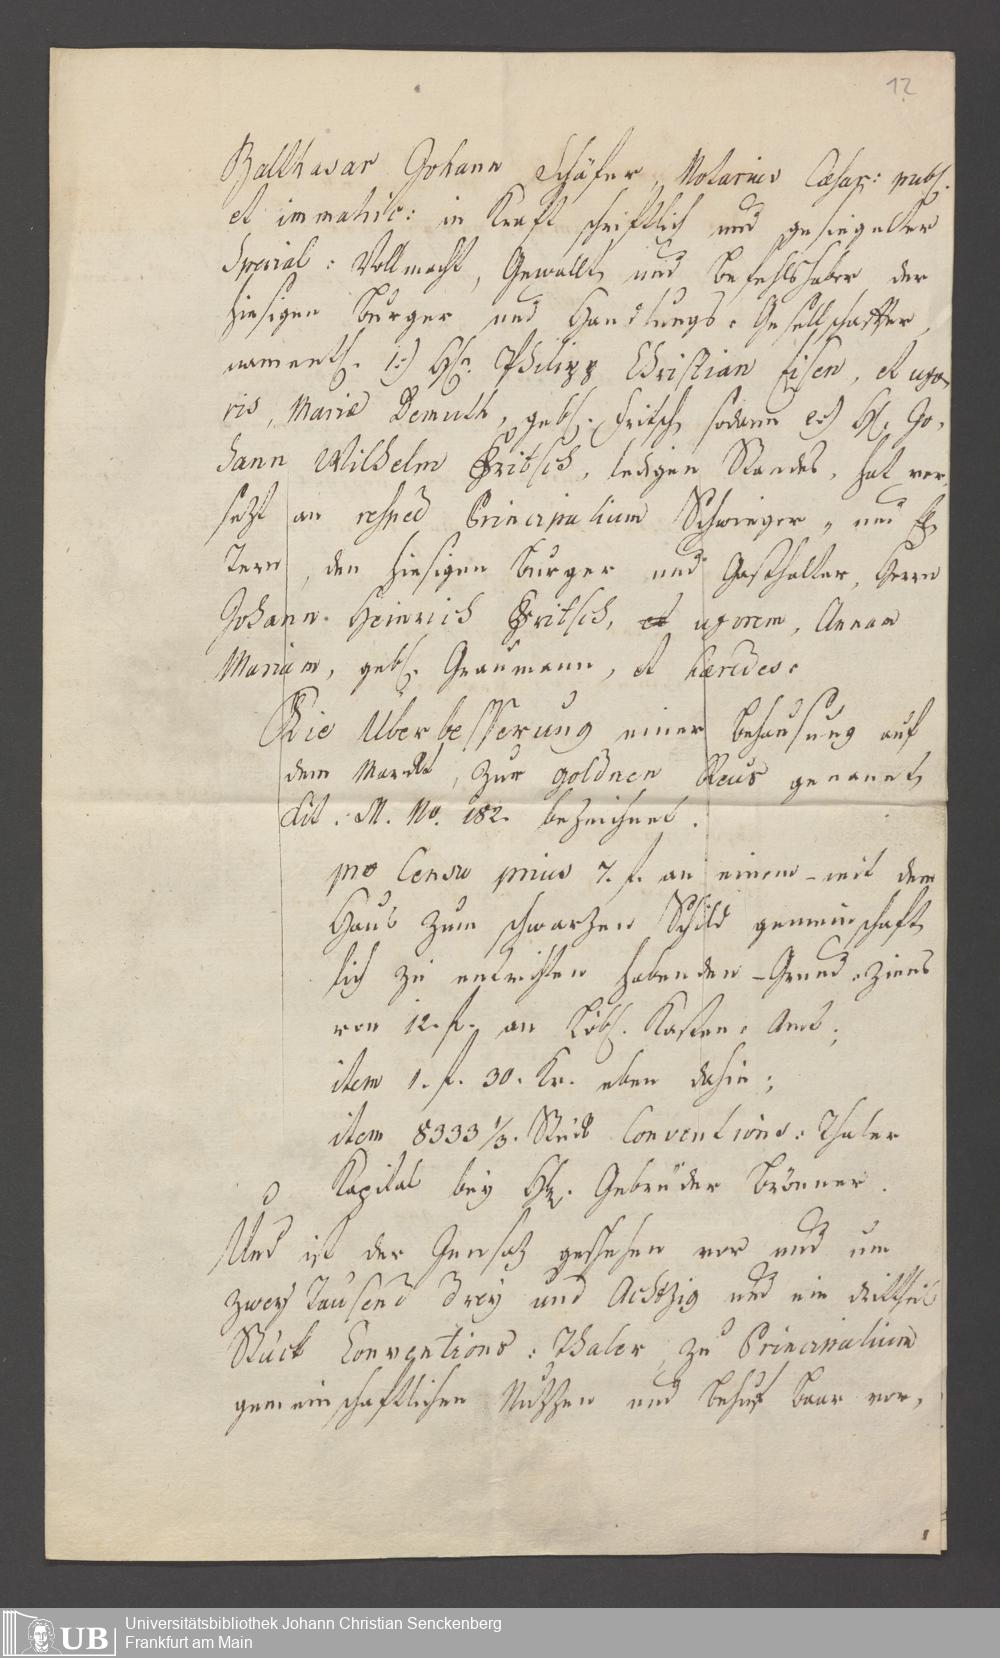 12
Balthasar Johann Schäfer, Notarius Cæsar: publ.
et immatric: in Kraft schriftlich und gesiegelter
Special: Vollmacht, Gewalt und Befehlshaber der
hiesigen Burger und Handlungs-Gesellschafter,
namentl. 1.) Hl. Philipp Christian Eisen, et uxo-
ris, Mariæ Demuth, gebl. Fritsch, sodann 2.) Hl. Jo-
hann Wilhelm Fritsch, ledigen Standes, hat ver-
setzt an resped Principalium Schwieger- und El-
tern, den hiesigen Burger und Gasthalter, Herrn
Johann Heinrich Fritsch, et uxorem, Annam
Mariam, gebl. Graumann, et hæredes.
Die Überbesserung einer Behausung auf
dem Marckt, zur goldnen Reus genannt,
Lit. M. No. 182. bezeichnet.
pro Censu prius 7. f. an einem - mit dem
Haus zum schwarzen Schild gemeinschaft-
lich zu entrichten habenden - Grund-Zinns
von 12. f. an Löbl. Kasten-Amt;
item 1. f. 30. Kr. eben dahin;
item 8333 1/3. Stück Conventions-Thaler
Kapital bey Hl. Gebrüder Brönner.
Und ist der Innsatz geschehen vor und um
zwey Tausend drey und Achtzig und ein drittheil
Stück Conventions-Thaler, zu Principalium
gemeinschaftlichen Nutzen und Behuf baar vor-
UB
Universitätsbibliothek Johann Christian Senckenberg
Frankfurt am Main